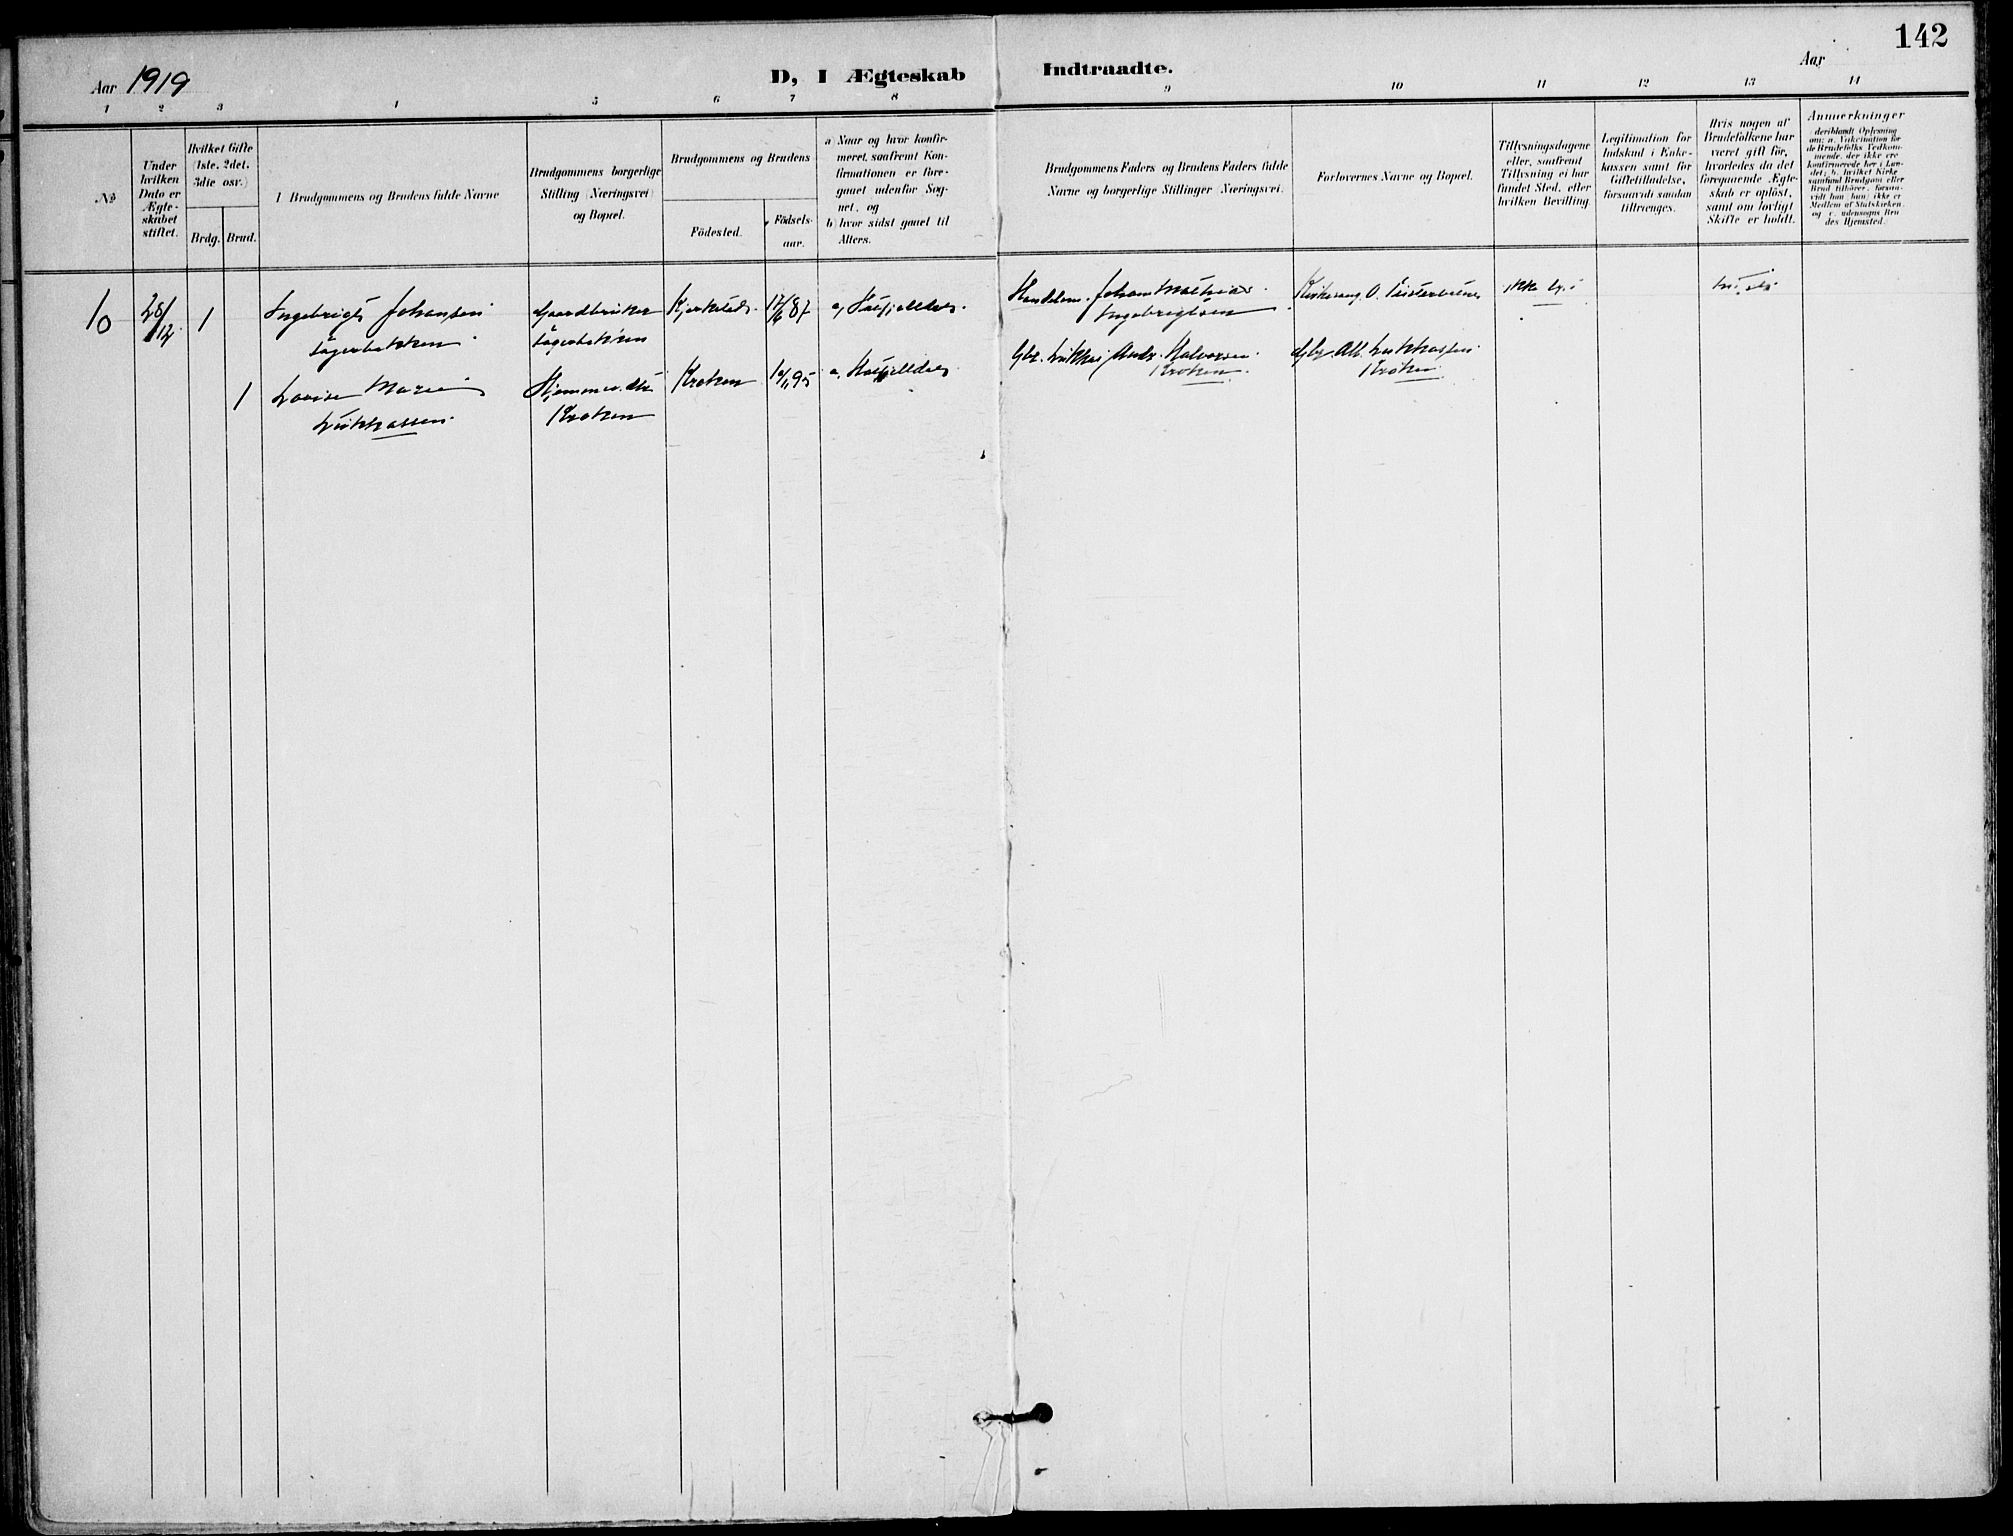 142
Aar 1919
D, I Ægteskab Indtraadte.
Aar
1 2 3 4 5 6 7 8 9 10 11 12 13 14
No
Under hvilken Dato er Ægte-skabet stiftet.
Hvilket Gifte (1ste. 2det. 3die osv.)
Brdg. Brud.
1 Brudgommens og Brudens fulde Navne
Brudgommens borgerlige Stilling (Næringsvei) og Bopæl.
Brudgommens og Brudens
Födested.
Födsels-aar.
a) Naar og hvor konfir-
meret, saafremt Kon-
firmationen er fore-
gaaet udenfor Sog-
net, og
b) hvor sidst gaaet til
Alters.
Brudgommens Faders og Brudens Faders fulde
Navne og borgerlige Stillinger (Næringsvei).
Forlovernes Navne og Bopæl.
Tillysningsdagene
eller, saafremt
Tillysning ei har
fundet Sted, efter
hvilken Bevilling.
Legitimation for
Indskud i Enke-
kassen samt for
Giftetilladelse,
forsaavidt saadan
tiltrænges.
Hvis nogen af
Brudefolkene har
været gift för,
hvorledes da det
foregaaende Ægte-
skab er oplöst,
samt om lovligt
Skifte er holdt.
Anmerkninger
deriblandt Oplysning
om: a. Vakcination for
de Brudefolks Vedkom-
mende, der ikke ere
konfirmerede her i Lan-
det; b. hvilket Kirke
samfund Brudgom eller
Brud tilhörer, forsaa-
vidt han (hun) ikke er
Medlem af Statskirken,
og c. udensogns Bru
des Hjemsted.
10 28/12 1 Ingebrigt Johansen Gaardbruker 17/6 87 a, Hatfjelldal.
Handelsm. Johan Mathias Kirkesang. O.
Ingebrigtsen
1 Lovise Marie Kroken 95 a, Hatfjelldal
Gbr. Andr. Halvorsen Gbr. Alb.
Kroken Kroken
Kroken